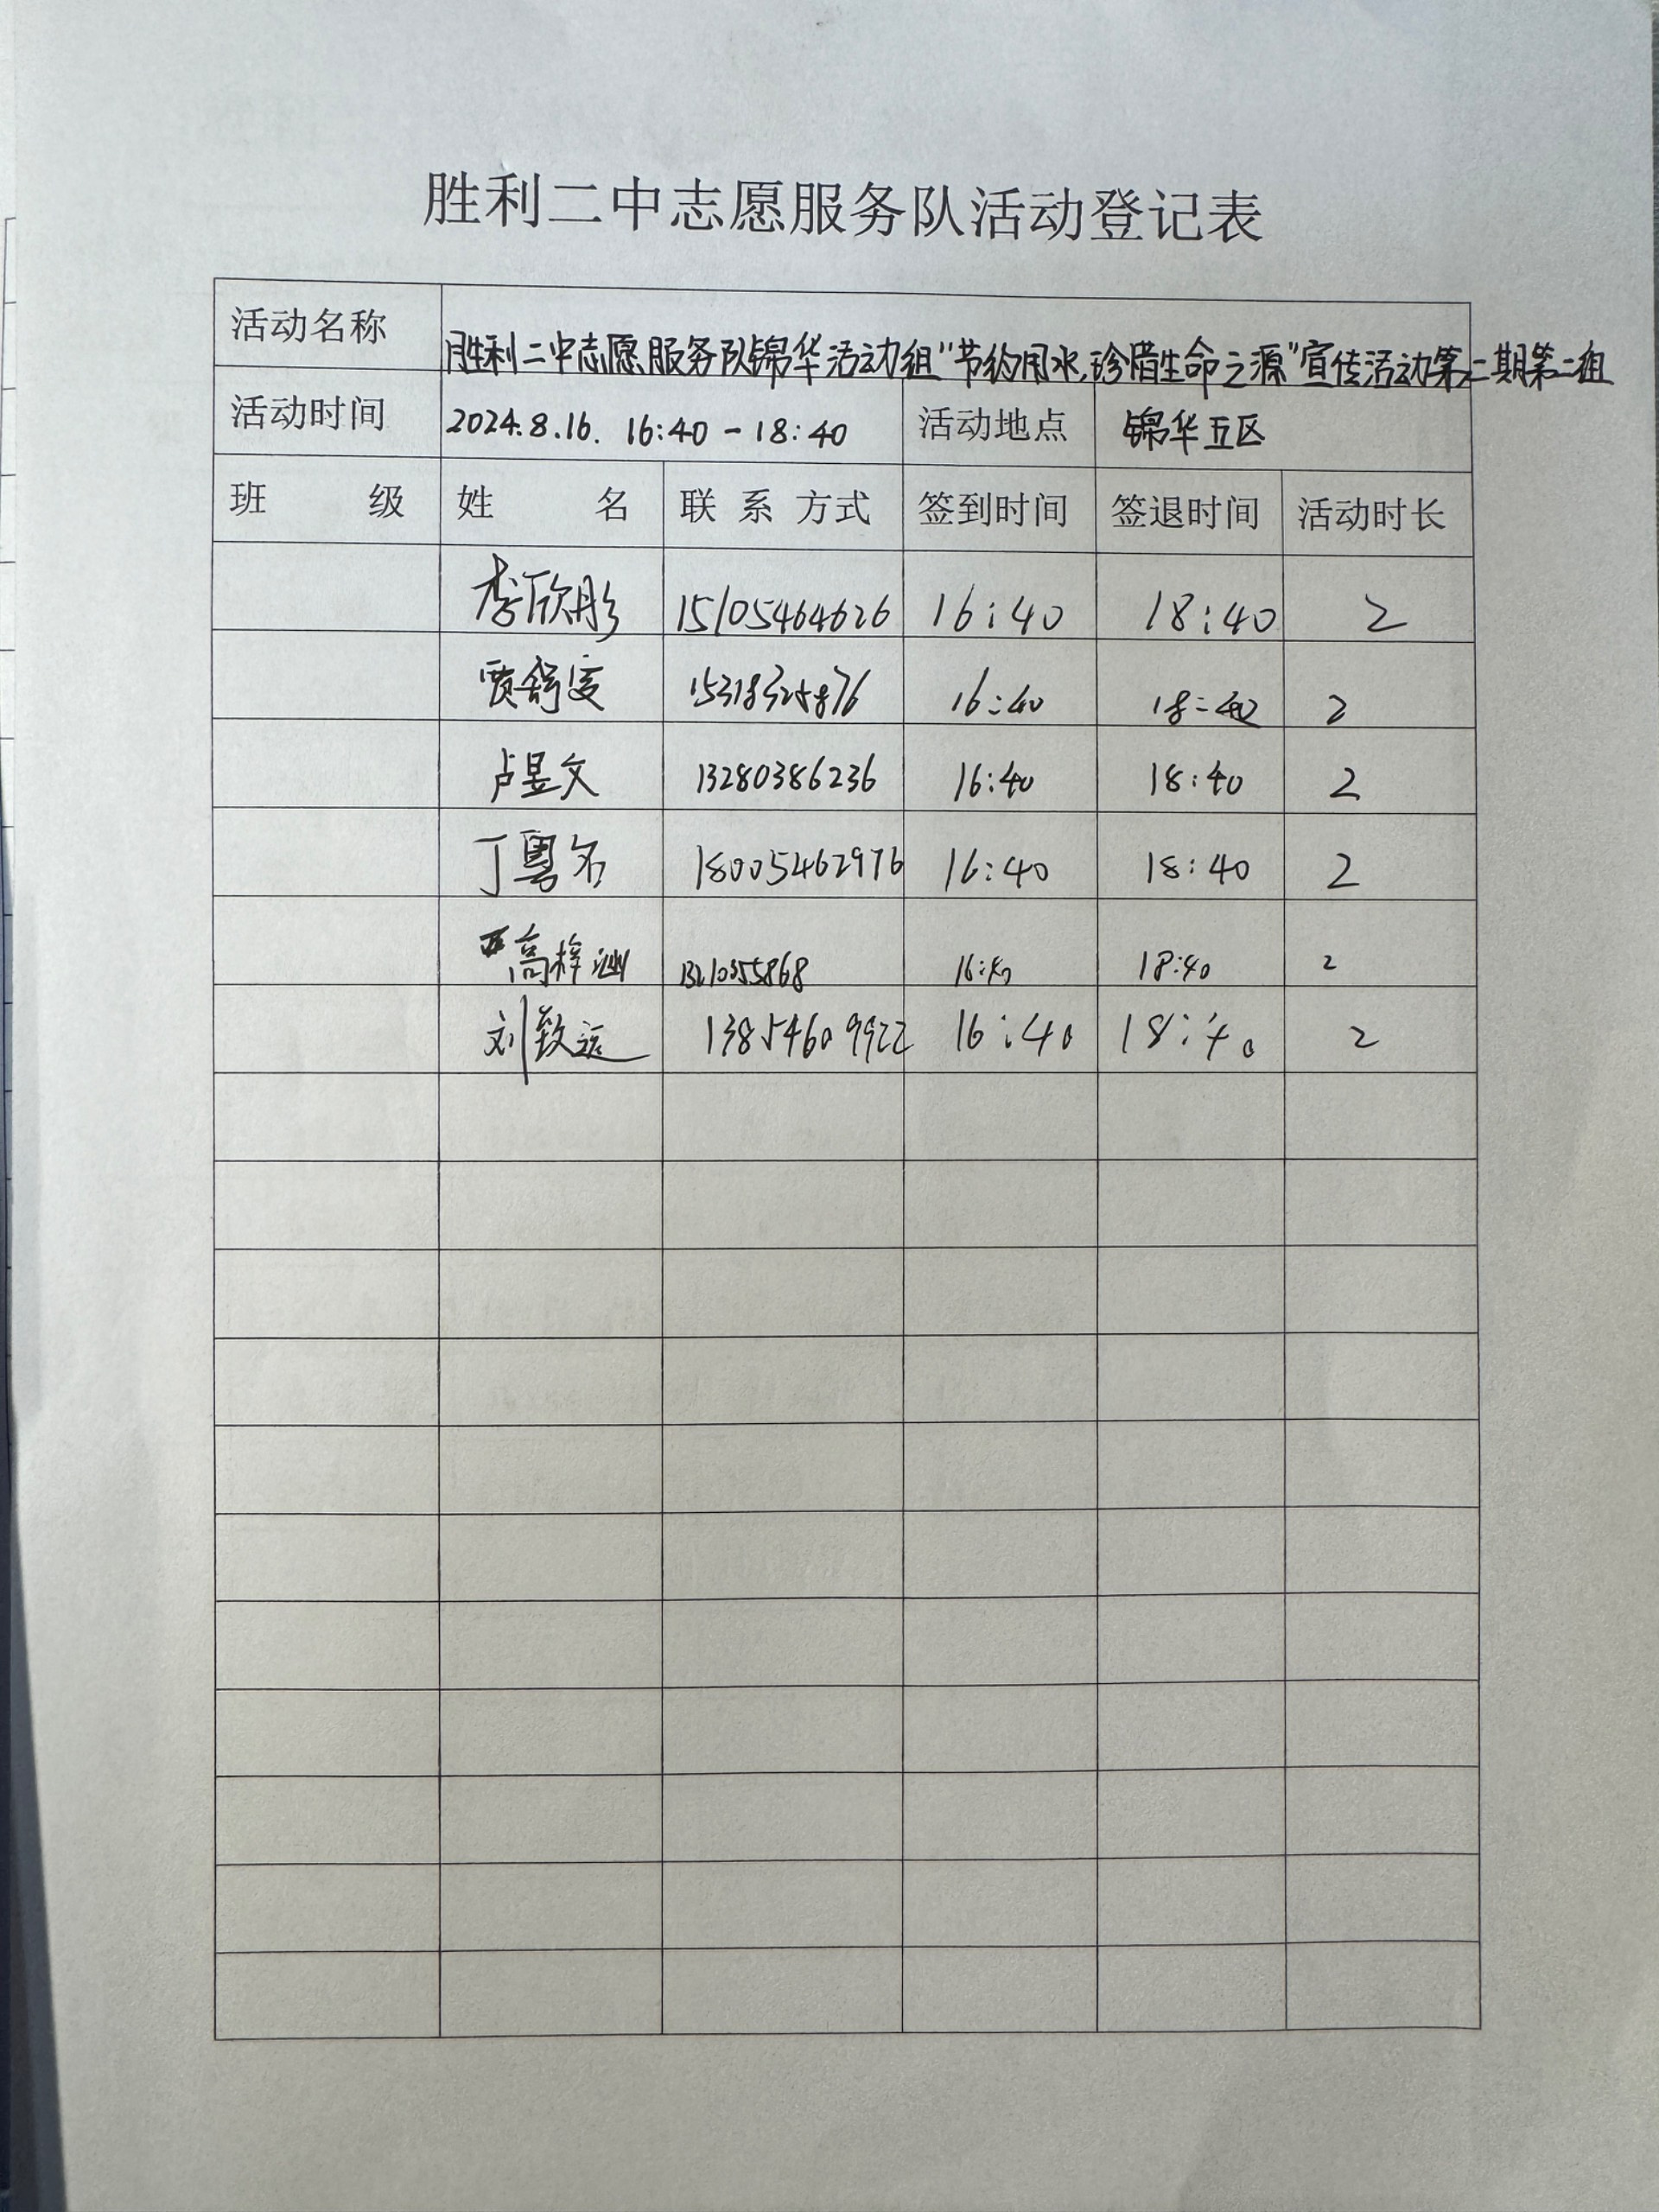 胜利二中志愿服务队活动登记表
活动名称 胜利二中志愿服务队锦华活动组"节约用水,珍惜生命之源"宣传活动第二期第二组
活动时间 2024.8.16. 16:40-18:40 活动地点 锦华五区
班 级 姓 名 联 系 方式 签到时间 签退时间 活动时长
李欣彤 15105464626 16:40 18:40 2
贾舒 16:40 18:40 2
卢昱文 13280386236 16:40 18:40 2
丁粤 18005462976 16:40 18:40 2
高梓 16:40 18:40 2
刘致远 13854609922 16:40 18:40 2